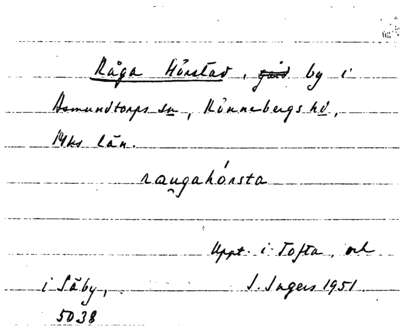 Råga Hörstad, gård by i
Asmundtorps sn, Rönnebergs hd,
Mhs län.
raugahórsta
Uppt. i Tofta, och
i Säby, I. Ingers 1951.
5038